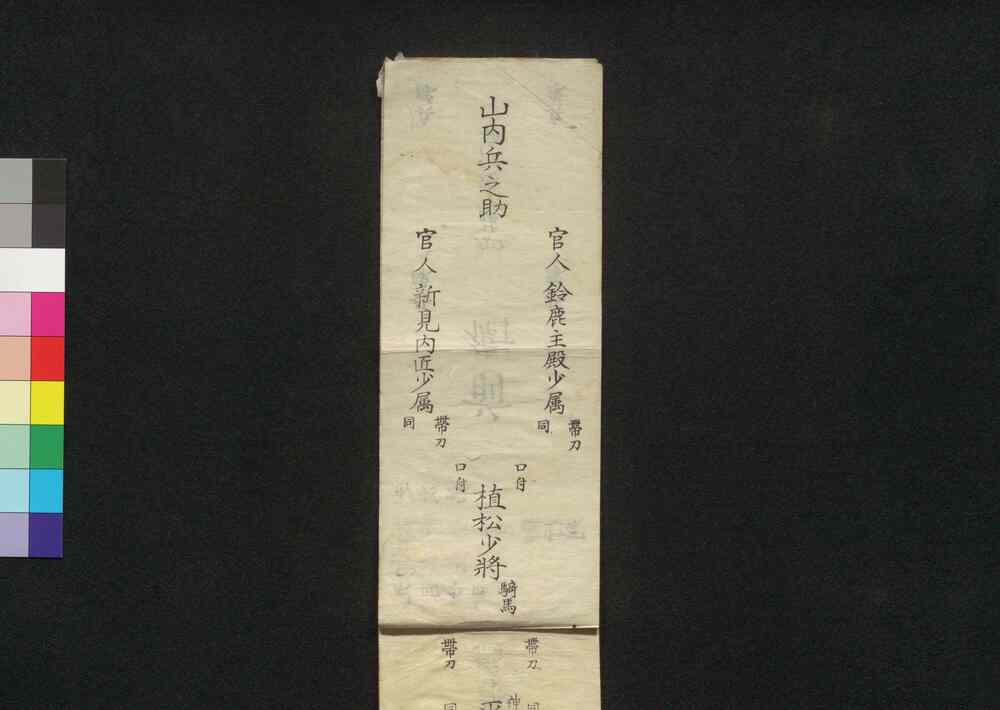 山内兵之助
官人鈴鹿主殿少属
帶刀
同
官人新見内匠少属
帶刀
同
口付
植松少將
騎馬
口付
帶刀
同
帶刀
同